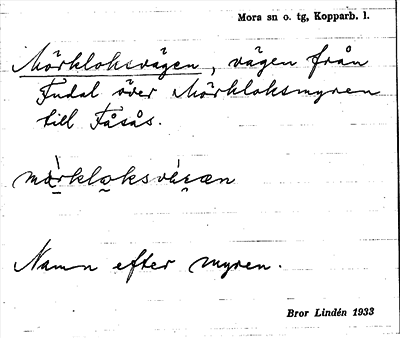 Mora sn o. tg, Kopparb. l.
Mörkloksvägen, vägen från
Fudal över Mörkloksmyren
till Fåsås.
Namn efter myren.
Bror Lindén 1933